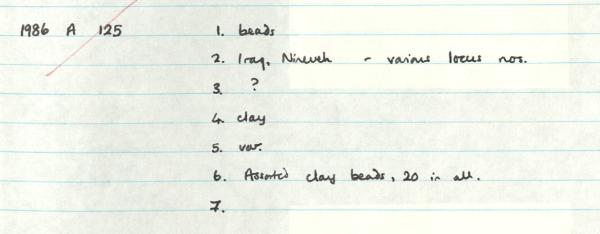 1986 A 125 1. beads
2. Iraq, Nineveh - various locus nos.
3. ?
4. clay
5. var.
6. Assorted clay beads, 20 in all.
7.